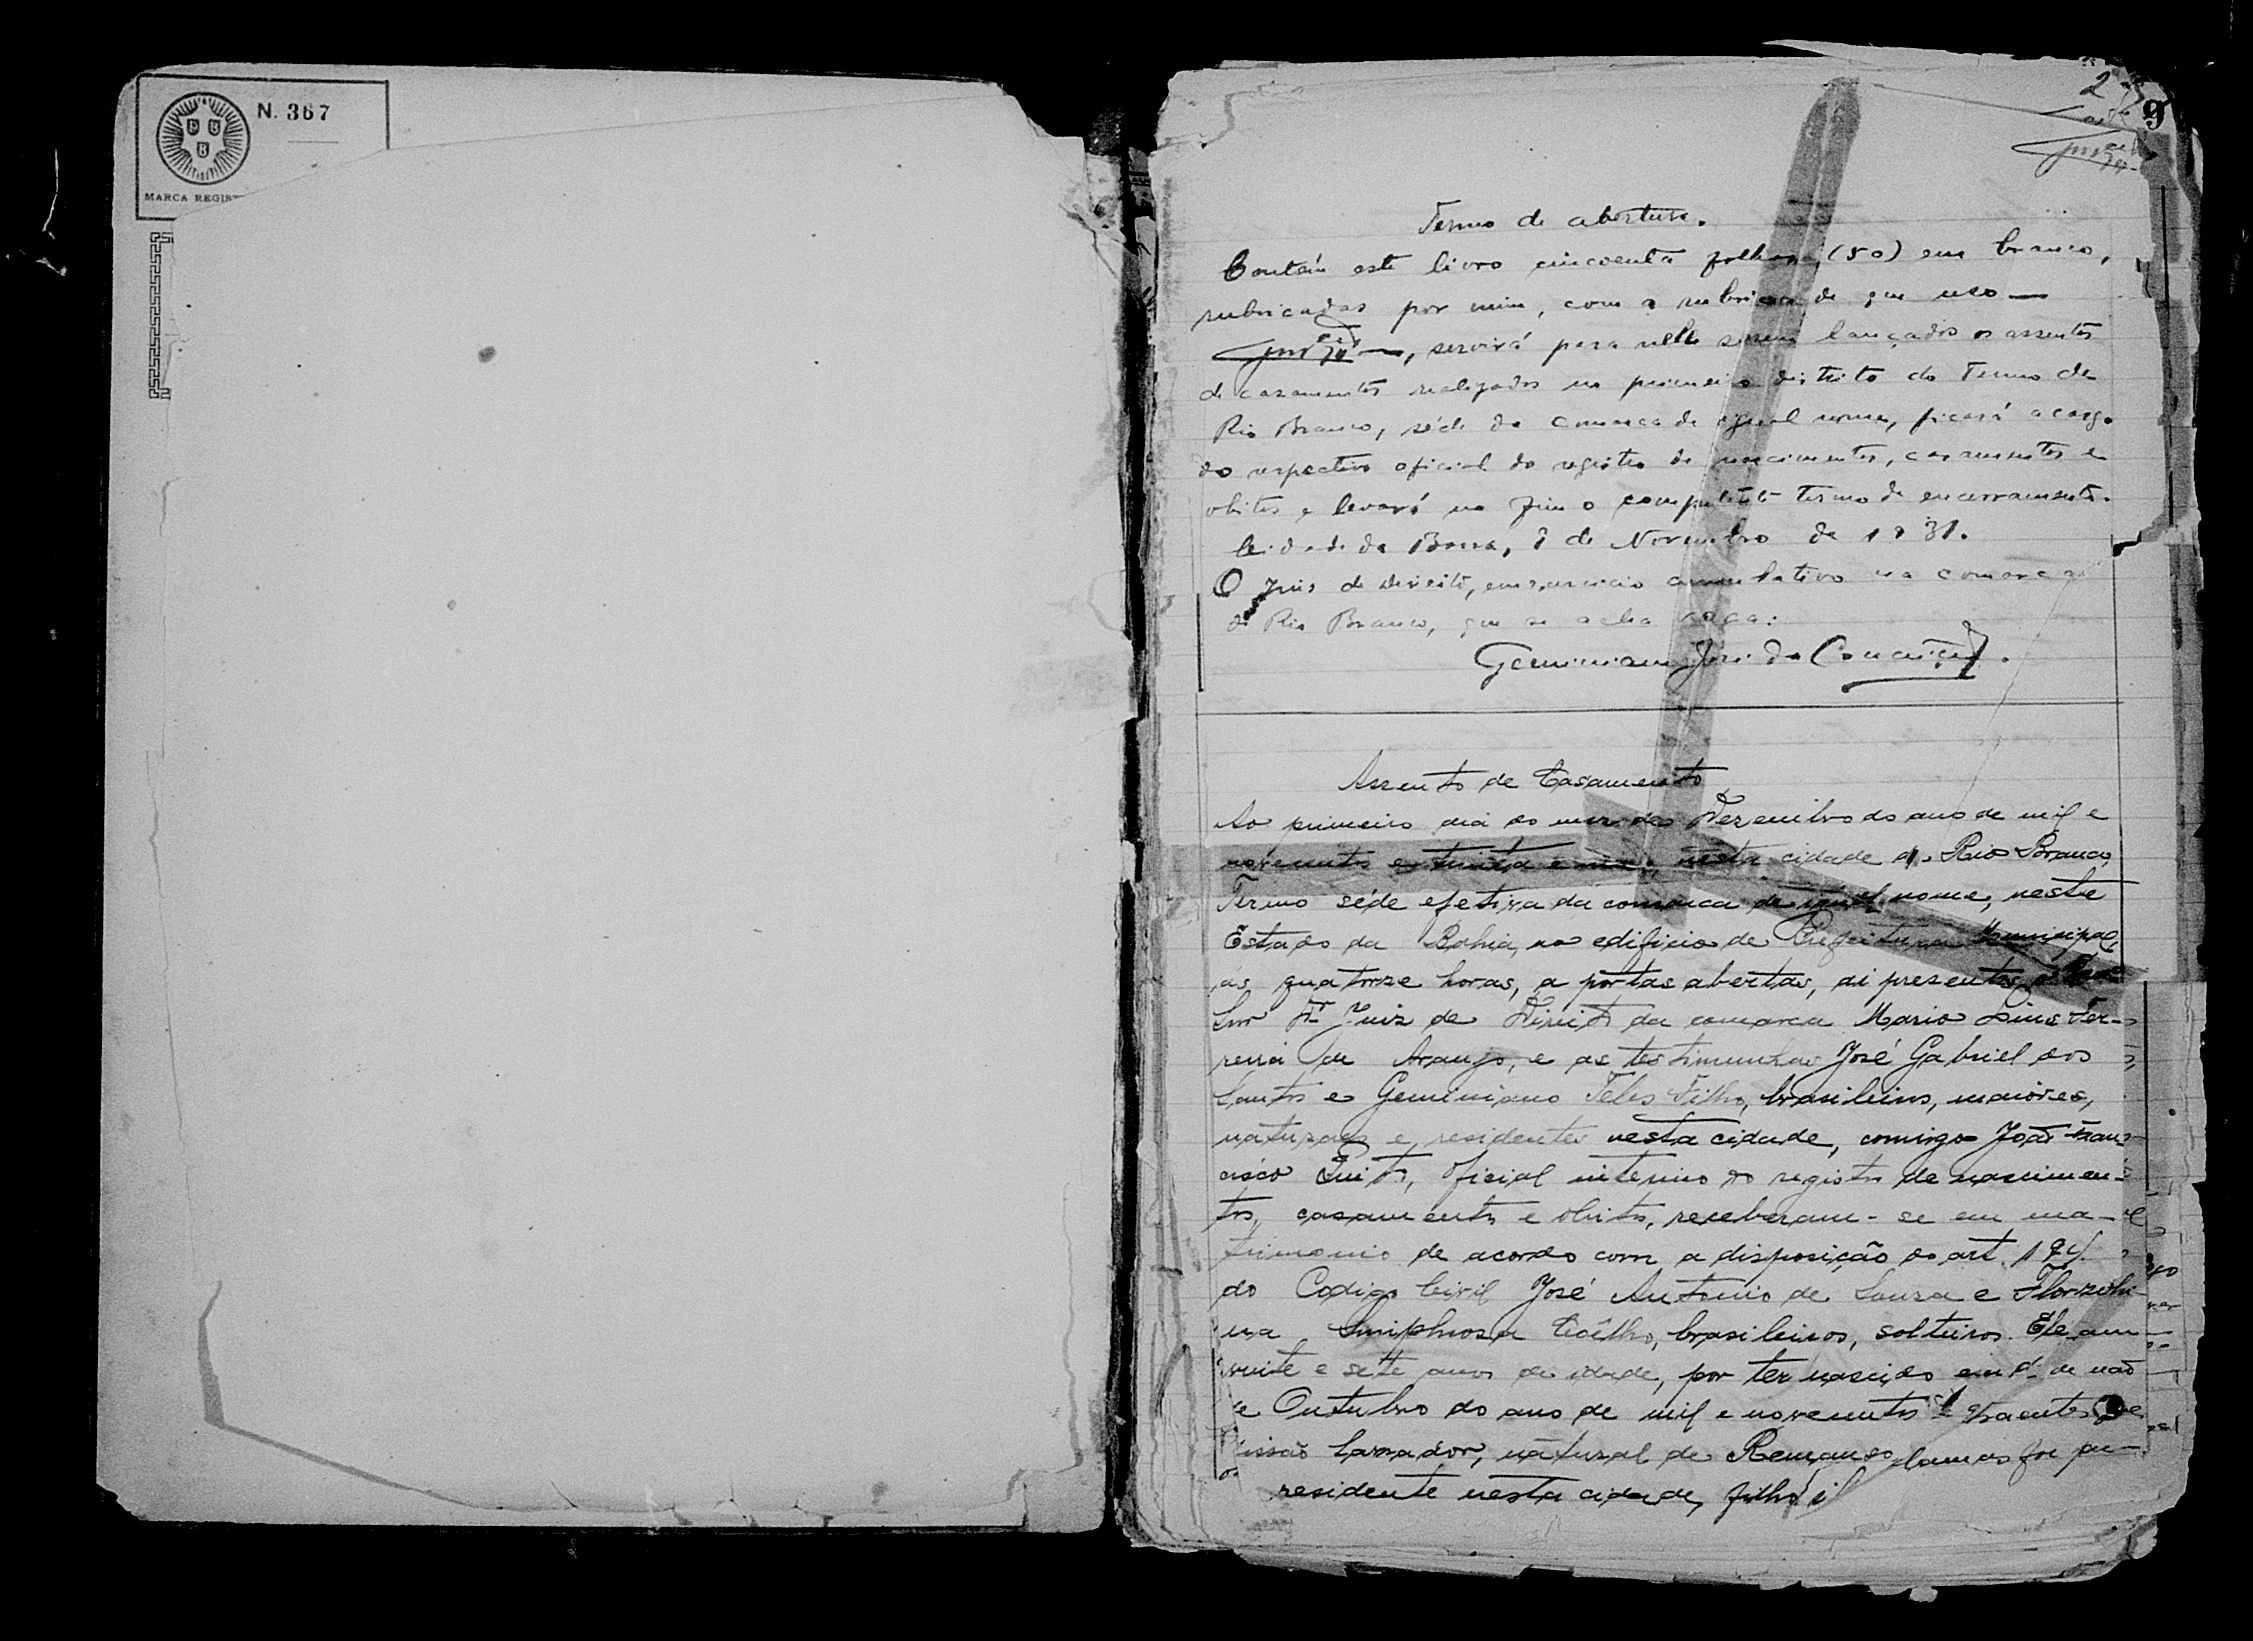 N. 367
MARCA REGIS
2
9
Termo de abertura.
Contém este livro cincoenta folhas (50) em branco,
rubricadas por mim, com a rubrica de que uso —
—, servirá para nelle serem lançados os assentos
de casamentos realizados no primeiro districto do Termo de
Rio Branco, séde da comarca de egual nome, ficará a cargo
do respectivo oficial do registro de nascimentos, casamentos e
obitos e levará no fim o competente termo de encerramento.
Cidade da Barra, 8 de Novembro de 1931.
O Juiz de Direito, em exercicio cumulativo na comarca
de Rio Branco, que se acha vaga:
Geminiano José da Conceição.
Assento de Casamento
Ao primeiro dia do mez de Dezembro do ano de mil e
novecentos e trinta e nesta cidade de Rio Branco,
Termo séde efetiva da comarca de igual nome, neste
Estado da Bahia, no edificio de Prefeitura Municipal,
ás quatorze horas, a portas abertas, ai presentes o
Snr Dr Juiz de Direito da comarca Mario Lins Fer-
reira de Araujo, e as testimunhas José Gabriel dos
Santos e Geminiano Teles Filho, brasileiros, maiores,
naturaes e residentes nesta cidade, comigo João Fran-
cisco oficial interino do registro de nascimen-
tos, casamentos e obitos, receberam-se em ma-
trimonio de acordo com a disposição do art. 194
do Codigo Civil José Antonio de Souza e
na Coêlho, brasileiros, solteiros. Ele
vinte e sete anos de idade, por ter nascido em
e Outubro do ano de mil e novecentos e
issão lavrador, natural de Remanso
residente nesta cidade, filho